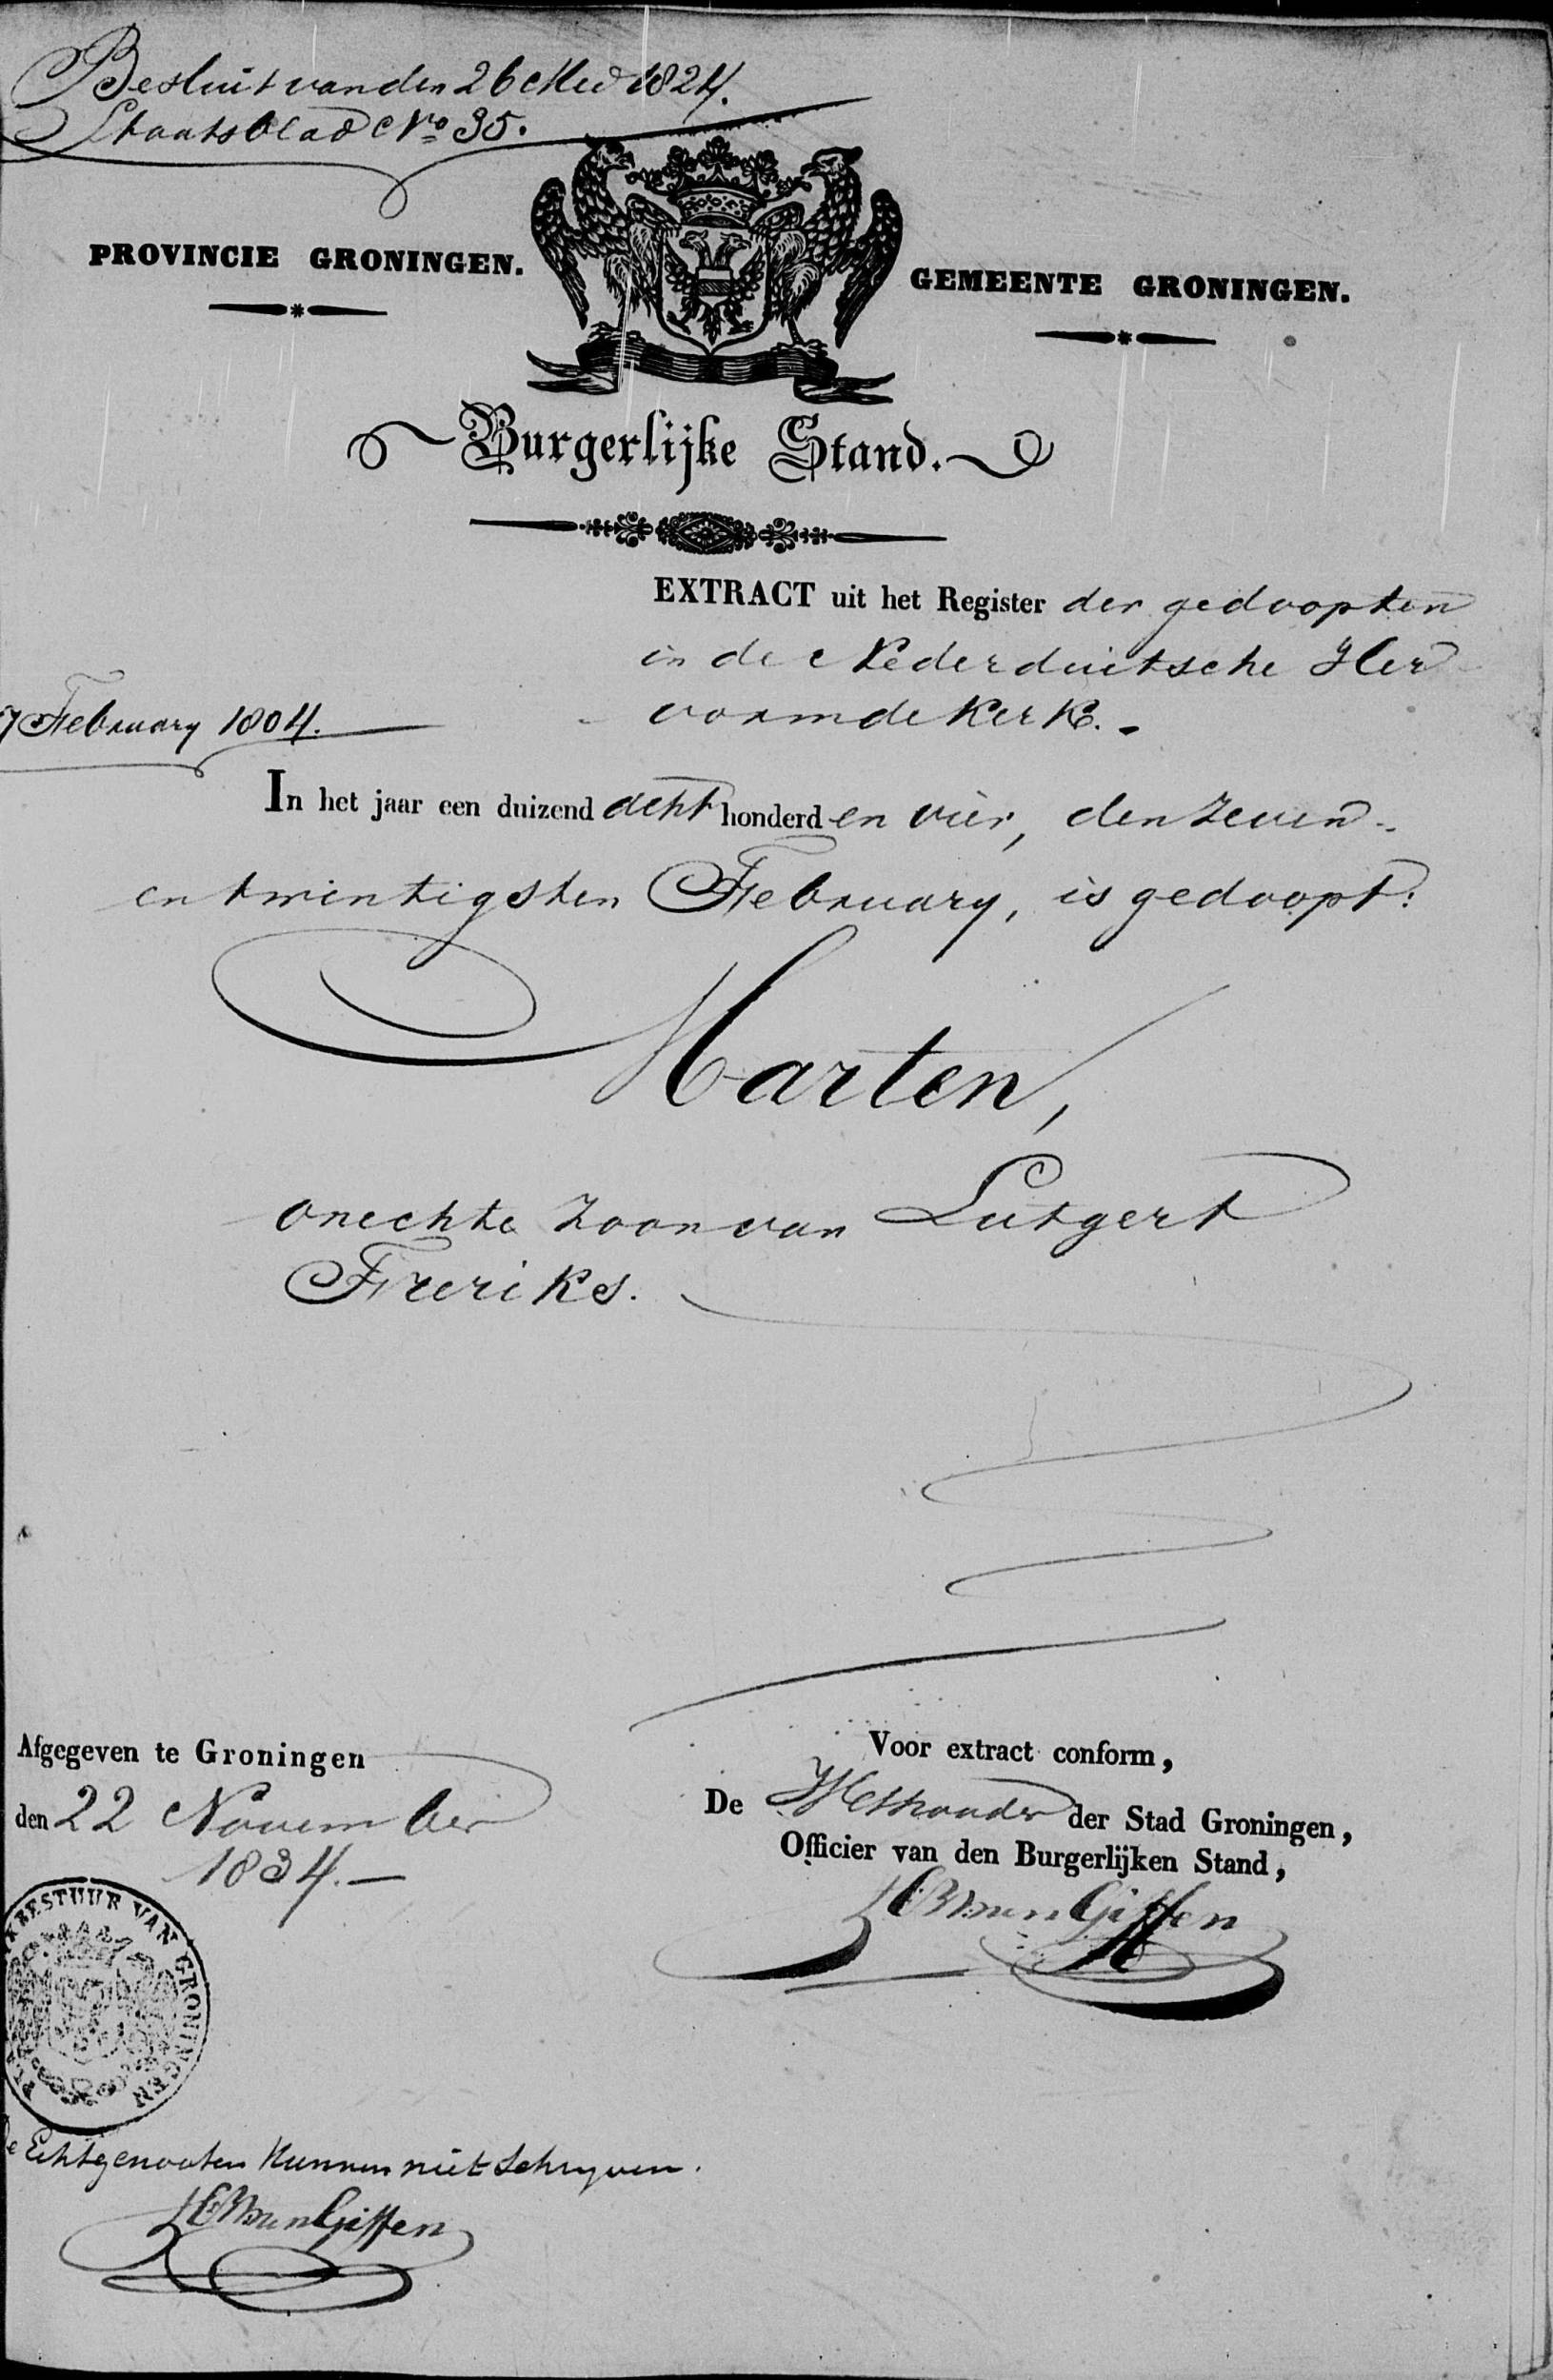 Besluit van den 26 Mei 1824.
Staatsblad No 35.
PROVINCIE GRONINGEN.
GEMEENTE GRONINGEN.
Burgerlijke Stand.
EXTRACT uit het Register der gedoopten
in de Nederduitsche Her
vormde Kerk.
7 February 1804.
In het jaar een duizend acht honderd en vier, den zeven-
en twintigsten February, is gedoopt:
Marten,
onechte zoon van Lutgert
Freriks.
Afgegeven te Groningen
den 22 November
1834.
Voor extract conform,
De Wethouder der Stad Groningen,
Officier van den Burgerlijken Stand,
van Giffen
BESTUUR VAN GRONINGEN
De Echtgenooten kunnen niet schryven.
van Giffen